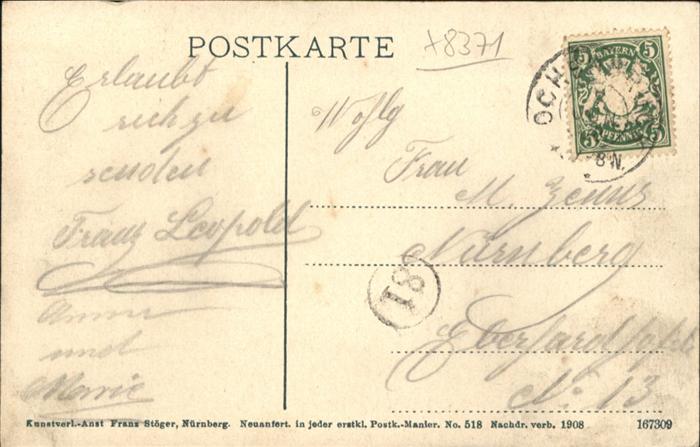 POSTKARTE
+8371
BAYERN
5 5
5 5
PFENNIG
OCH
8 N.
Erlaubt
sich zu
senden
Franz Leopold
Anna
und
Marie
Wohlg
Frau
M. Zenns
Nürnberg
18
No. 13
Kunstverl.-Anst Franz Stöger, Nürnberg. Neuanfert. in jeder erstkl. Postk.-Manier. No. 518 Nachdr. verb. 1908 167309